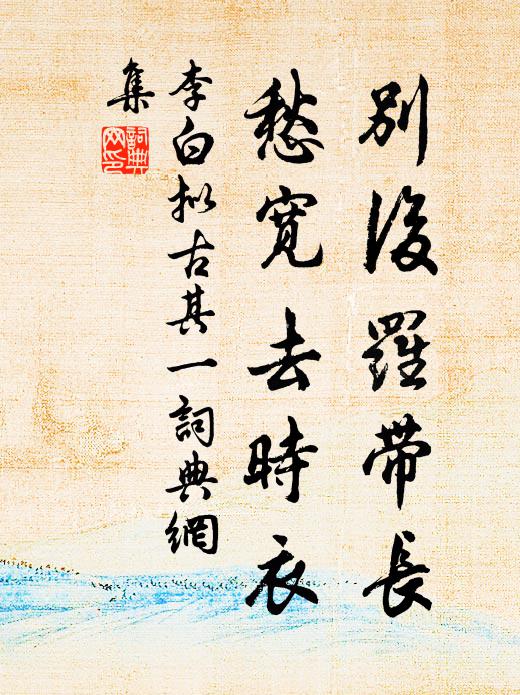 別後羅帶長
愁寬去時衣
李白拟古其一詞典網
集
詞典
网印